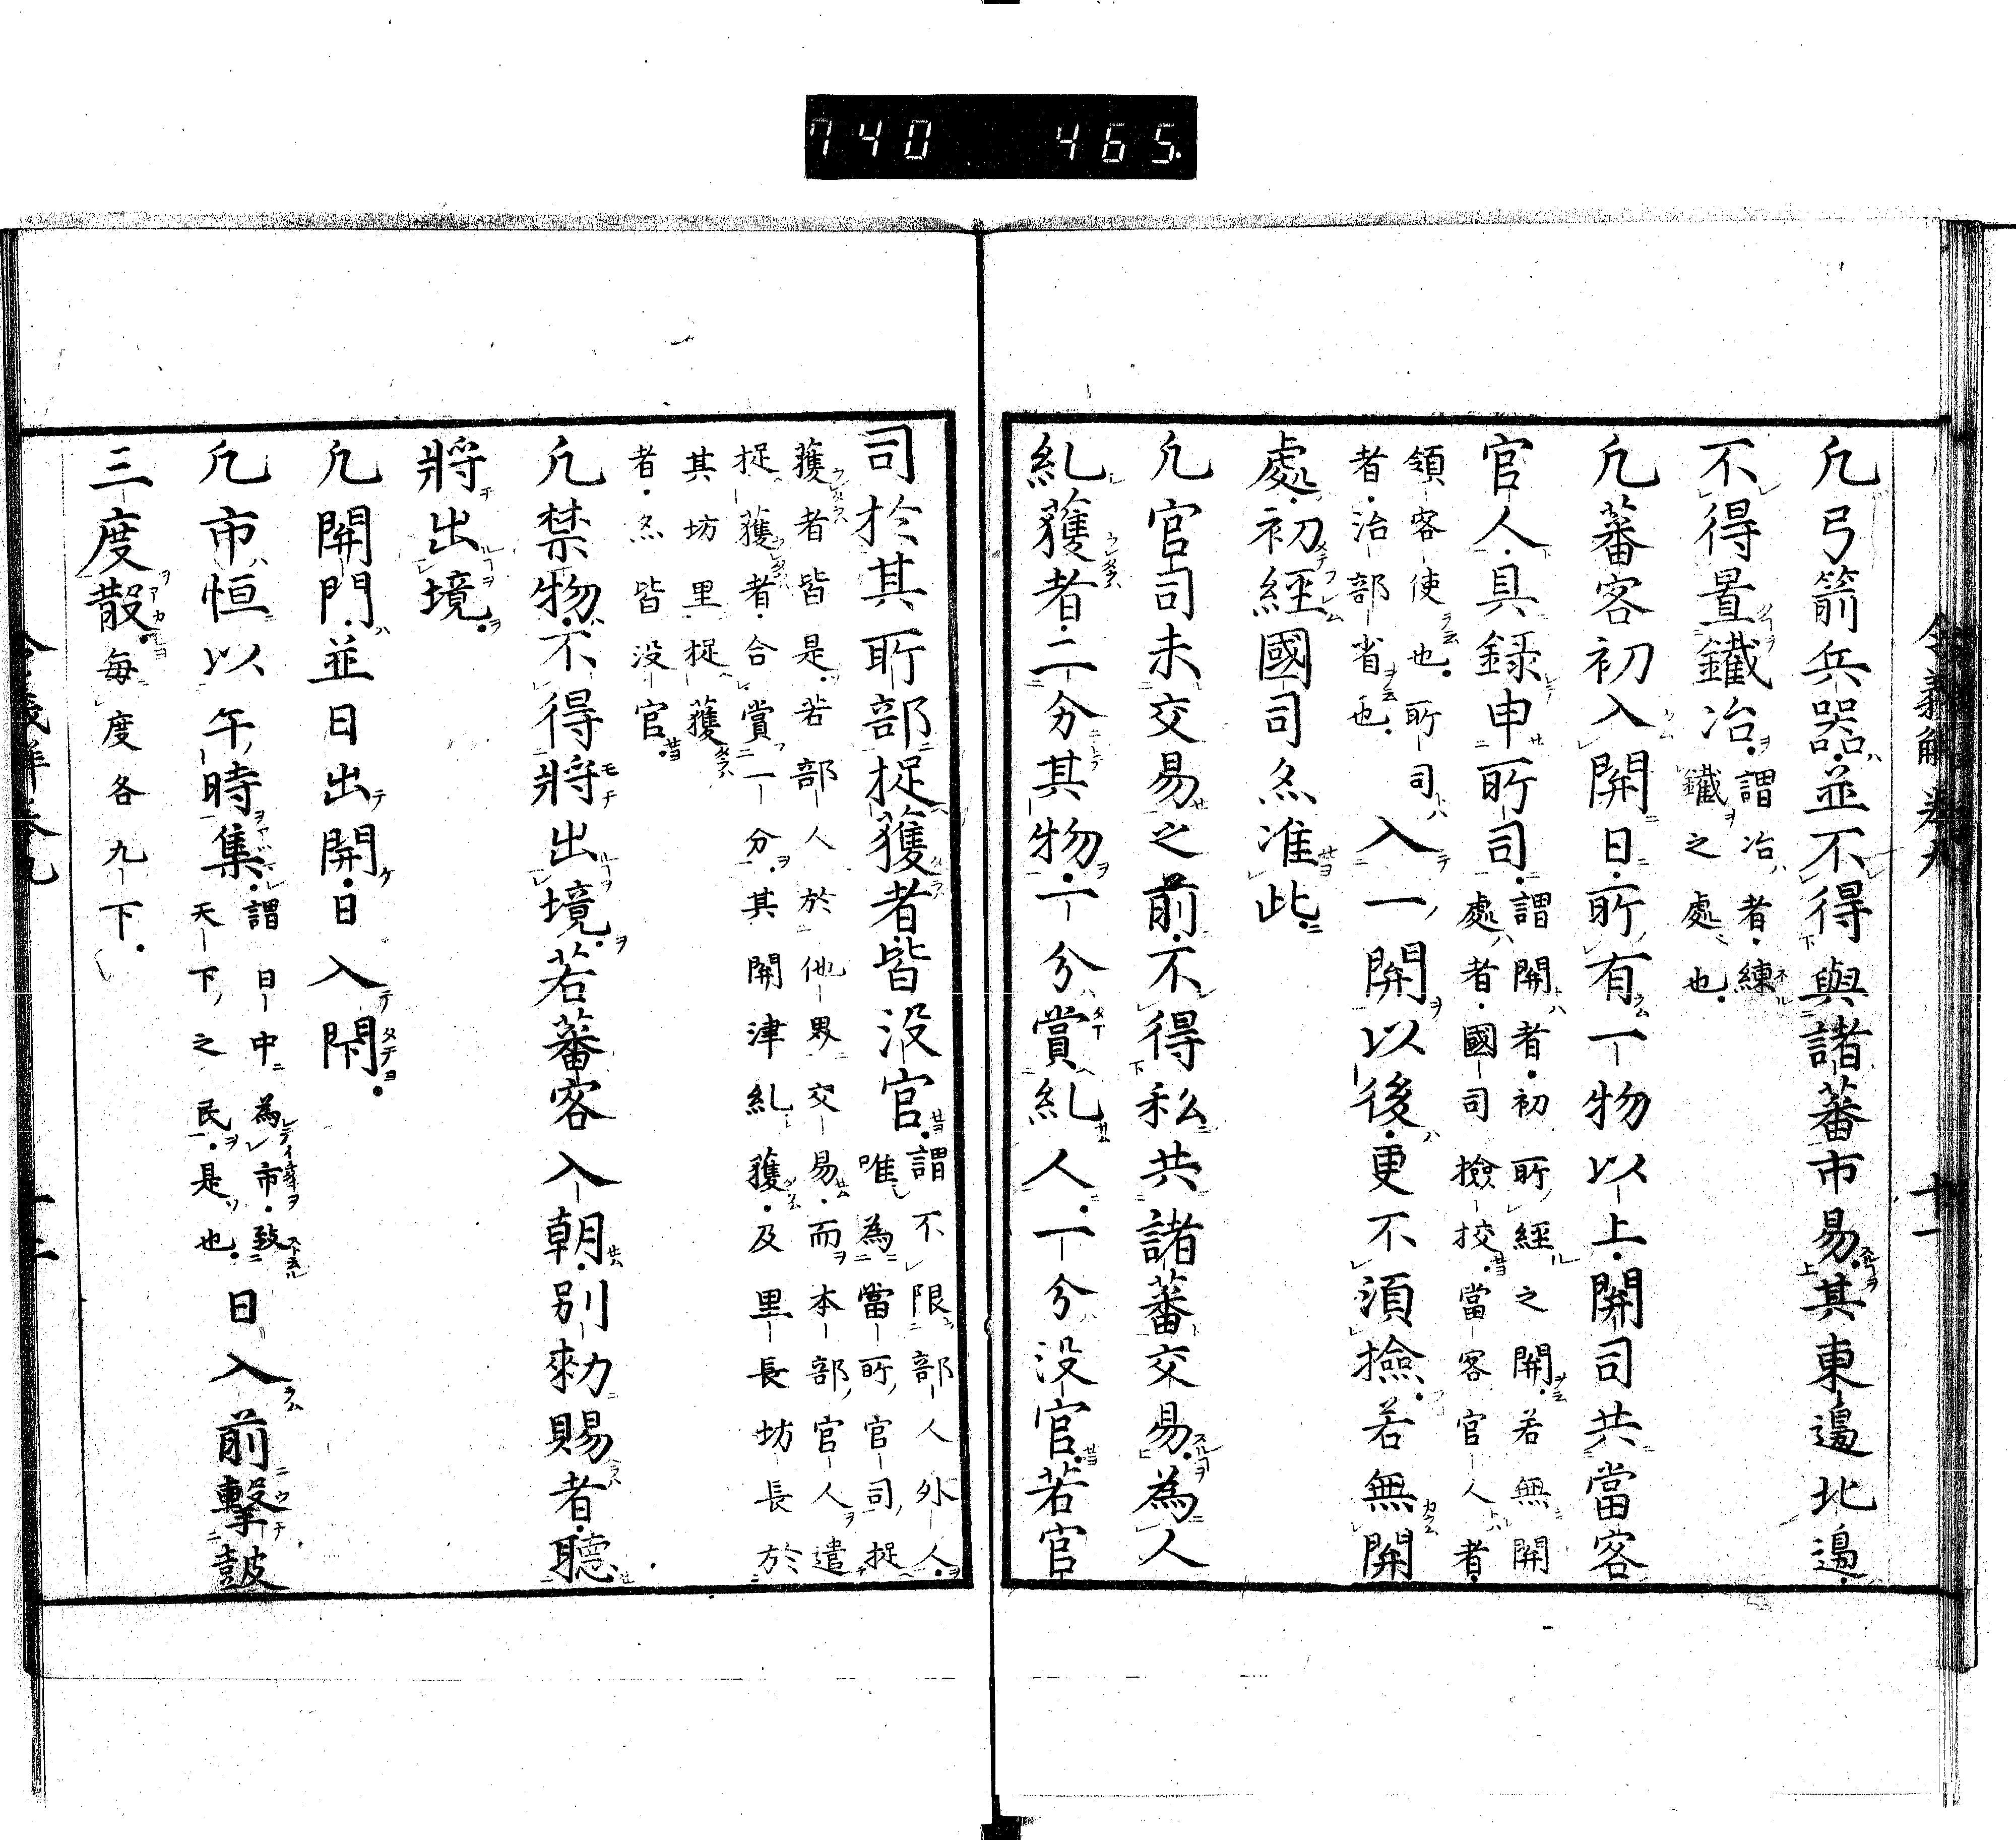 740 465.
令義解卷九 十一
凡弓箭兵器並不得與諸蕃市易其東邊北邊
不得置鐵冶謂冶者練
鐵之處也
凡蕃客初入關日所有一物以上關司共當客
官人具録申所司謂關者初所經之關若無關
處者國司撿挍當客官人者
領客使也所司
者治部省也入一關以後更不須撿若無關
處初經國司亦准此
凡官司未交易之前不得私共諸蕃交易為人
糺獲者二分其物一分賞糺人一分没官若官
司於其所部捉獲者皆没官謂不限部人外人
唯為當所官司捉
獲者皆是若部人於他界交易而本部官人遣
捉獲者合賞一分其關津糺獲及里長坊長於
其坊里捉獲
者亦皆没官
凡禁物不得將出境若蕃客入朝別勑賜者聽
將出境
凡關門並日出開日入閇
凡市恒以午時集謂日中為市致
天下之民是也日入前擊鼓
三度散每度各九下
令義解卷九 十二